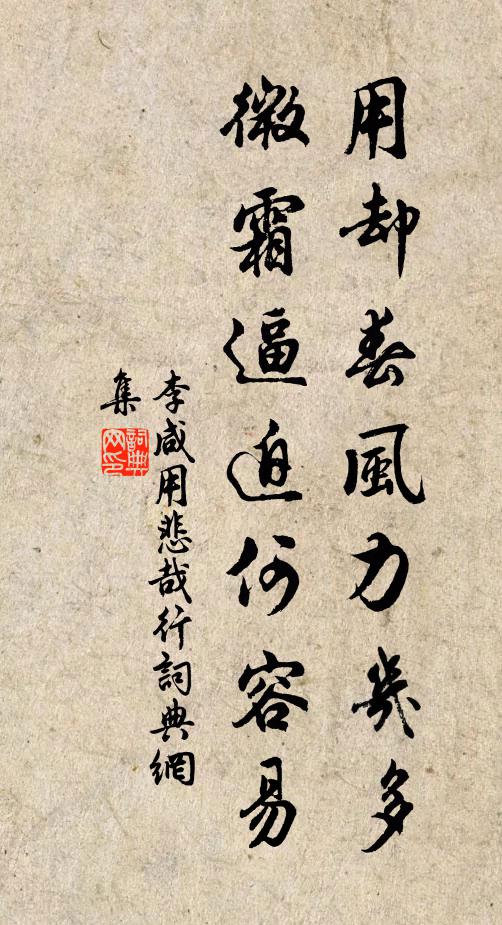 用却春風力幾多
微霜逼迫何容易
李咸用悲哉行詞典網
集
詞典
网印